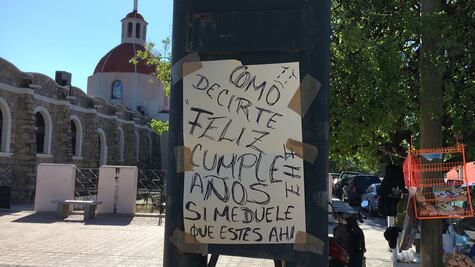 COMO
DECIRTE
"FELIZ
CUMPLE
AÑOS
SI ME DUELE
QUE ESTES AHI